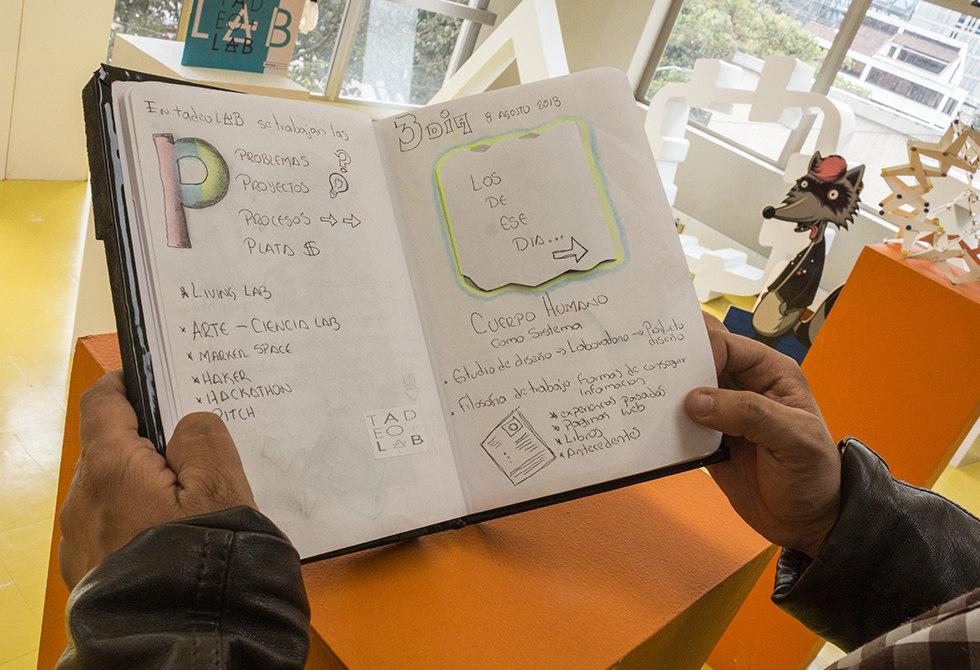 TAD
EO
LAB
En tadeoLAB se trabajan las
P
PROBLEMAS ?
PROYECTOS
PROCESOS
PLATA $
* LIVING LAB
* ARTE - CIENCIA LAB
* MARKER SPACE
* HAKER
* HACKATHON
PITCH
TAD
EO
LAB
3 DIA 8 AGOSTO 2018
LOS
DE
ESE
DIA...
CUERPO HUMANO
como Sistema
• Estudio de diseño → Laboratorio → Producto
diseño
• Filosofia de trabajo Formas de conseguir
informacion
* experiencias pasadas
* Paginas web
* Libros
* Antecedentes